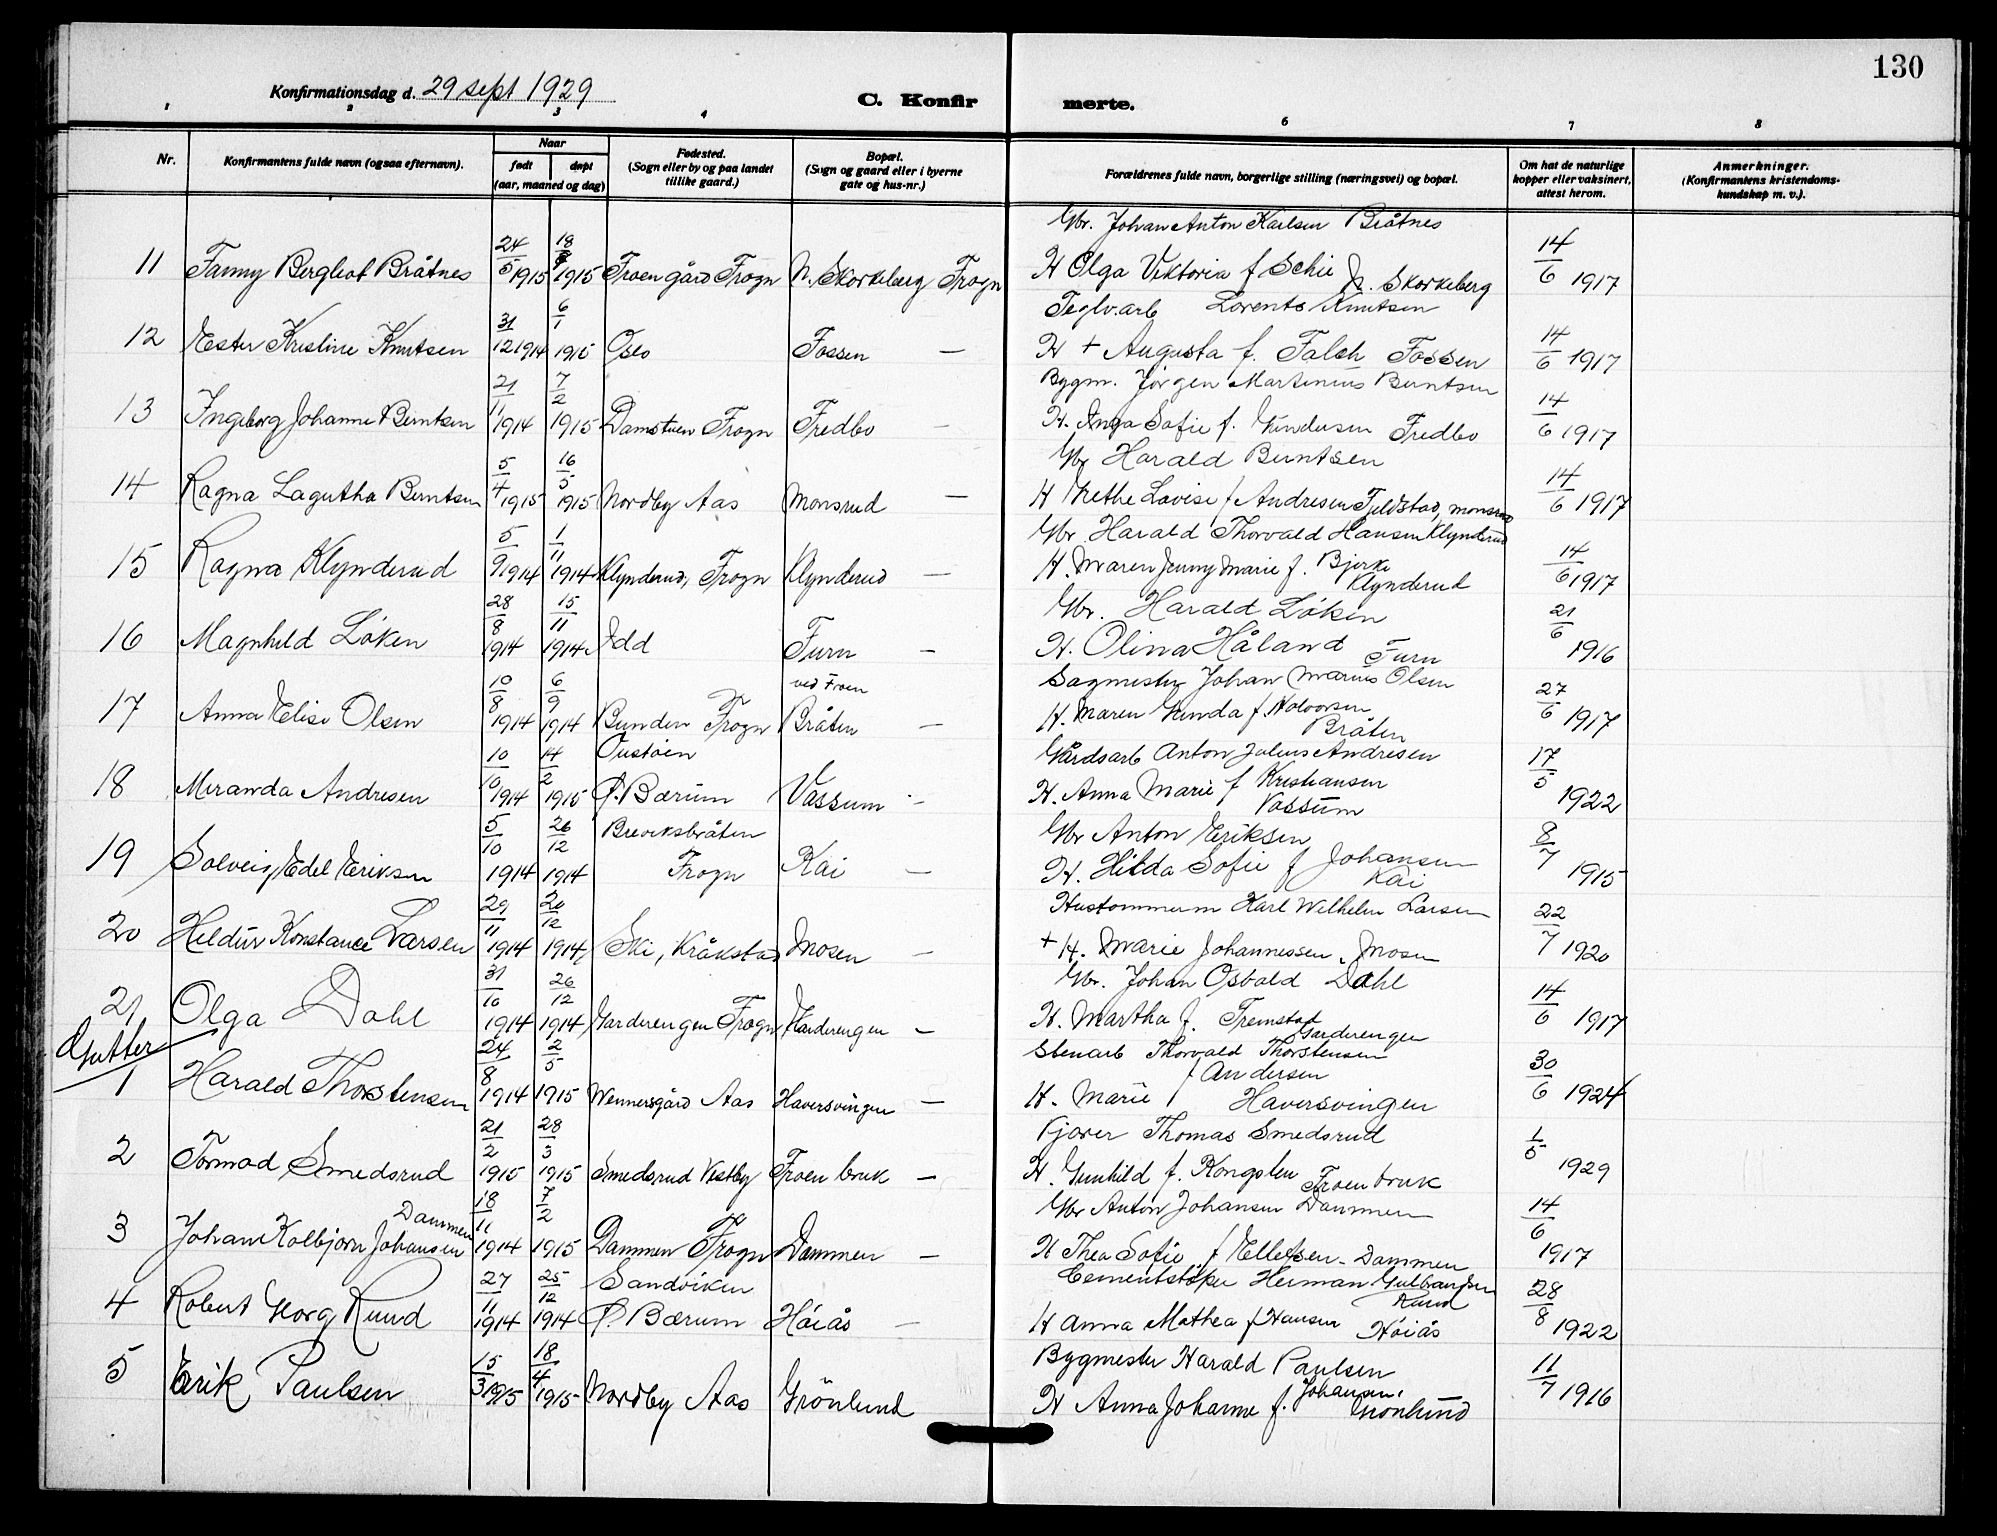 130
Konfirmationsdag d. 29 sept 1929
C. Konfir merte.
1 2 3 4 6 7 8
Nr.
Konfirmantens fulde navn (ogsaa efternavn).
Naar
født døpt
(aar, maaned og dag)
Fødested.
(Sogn eller by og paa landet
tillike gaard.)
Bopæl.
(Sogn og gaard eller i byerne
gate og hus-nr.)
Forældrenes fulde navn, borgerlige stilling (næringsvei) og bopæl.
Om hat de naturlige
kopper eller vaksinert,
attest herom.
Anmerkninger.
(Konfirmantens kristendoms-
kundskap m. v.).
Gbr. Johan Anton Karlsen Bråtnes
11 Fanny Bergliot Bråtnes 24/5 1915 18/ 1915 Froen gård Frogn N. Skorkeberg Frogn H Olga Viktoria f Schie N. Skorkeberg 14/6 1917
Teglv.arb Lorents Knutsen
12 Ester Kristine Knutsen 31/12 1914 6/1 1915 Oslo Fossen — H + Augusta f. Falch Fossen 14/6 1917
Bygm. Jörgen Martinius Berntsen
13 Ingeborg Johanne Berntsen 21/11 1914 7/2 1915 Damstuen Frogn Fredbo — H. Inga Sofie f. Gundersen Fredbo 14/6 1917
Gbr Harald Berntsen
14 Ragna Lagutha Berntsen 5/4 1915 16/5 1915 Nordby Aas Monsrud — H Lovise f Andresen Fjeldstad, Monsrud 14/6 1917
Gbr. Harald Thorvald Hansen Klynderud
15 Ragna Klynderud 5/9 1914 1/11 1914 Klynderud, Frogn Klynderud — H. Maren Jenny Marie f. Bjerke
Klynderud 14/6 1917
Gbr. Harald Löken
16 Magnhild Löken 28/8 1914 15/11 1914 Idd Furu — H. Olina Håland Furu 21/6 1916
ved Froen
Sagmester Johan Marius Olsen
17 Anna Elise Olsen 10/8 1914 6/9 1914 Bunden Frogn Bråten — H. Maren Gunda f. Halvorsen
Bråten 27/6 1917
Oustöen
Gårdsarb Anton Julius Andresen
18 Miranda Andresen 10/10 1914 14/2 1915 Ø. Bærum Vassum — H. Anna Marie f Kristiansen
Vassum 17/5 1922
Breviksbråten
Gbr Anton Eriksen
19 Solveig Edel Eriksen 5/10 1914 26/12 1914 Frogn Kai — H. Hilda Sofie f Johansen
Kai 8/7 1915
Hustömmerm Karl Wilhelm Larsen
20 Hildur Konstance Larsen 29/11 1914 20/12 1914 Ski, Kråkstad Mosen — + H. Marie Johannessen, Mosen 22/7 1920
Gbr. Johan Osvald Dahl
21 Olga Dahl 31/10 1914 26/12 1914 Garderengen Frogn Garderengen — H. Martha f. Fremstad
Garderengen 14/6 1917
Gutter
Stenarb Thorvald Thorstensen
1 Harald Thorstensen 24/8 1914 2/5 1915 Wennersgård Aas Haversvingen — H. Marie f Andersen
Haversvingen 30/6 1924
Kjörer Thomas Smedsrud
2 Tormod Smedsrud 21/2 1915 28/3 1915 Smedsrud Vestby Froen bruk — H. Gunhild f. Kongslien Froen bruk 1/5 1929
Gbr Anton Johansen Dammen
3 Johan Kolbjorn Johansen Dammen 18/11 1914 7/2 1915 Dammen Frogn Dammen — H Thea Sofie f Ellefsen - Dammen 14/6 1917
Sandviken
Cementstöper Herman Gulbrandsen
Ruud
4 Robert Georg Ruud 27/11 1914 25/12 1914 Ø. Bærum Höiås — H Anna Mathea f Hansen Höiås 28/8 1922
Bygmester Harald Paulsen
5 Erik Paulsen 15/3 1915 18/4 1915 Nordby Aas Grönlund H Anna Johanne f. Johansen,
Grönlund 11/7 1916